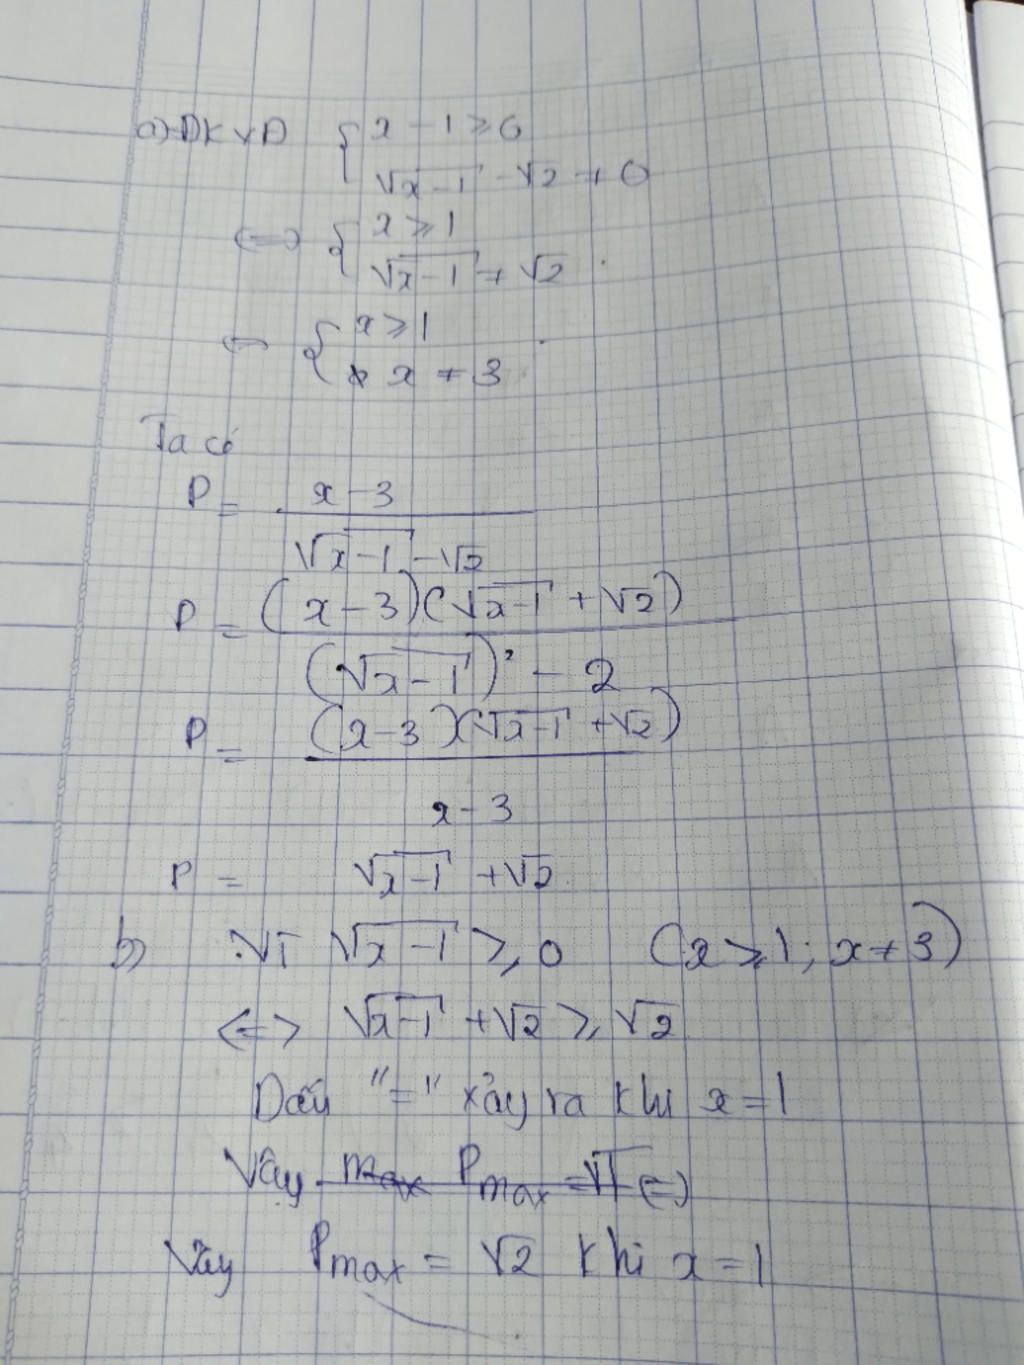 a) ĐKXĐ { x - 1 ≥ 0
√(x-1) - √2 ≠ 0
<=> { x ≥ 1
√(x-1) ≠ √2
<=> { x ≥ 1
x ≠ 3
Ta có
P = (x-3)/(√(x-1) - √2)
P = ((x-3)(√(x-1) + √2))/((√(x-1))² - 2)
P = ((x-3)(√(x-1) + √2))/(x-3)
P = √(x-1) + √2
b) Vì √(x-1) ≥ 0 (x ≥ 1; x ≠ 3)
<=> √(x-1) + √2 ≥ √2
Dấu "=" xảy ra khi x = 1
Vậy max Pmax = √1 <=>
Vậy Pmax = √2 khi x = 1